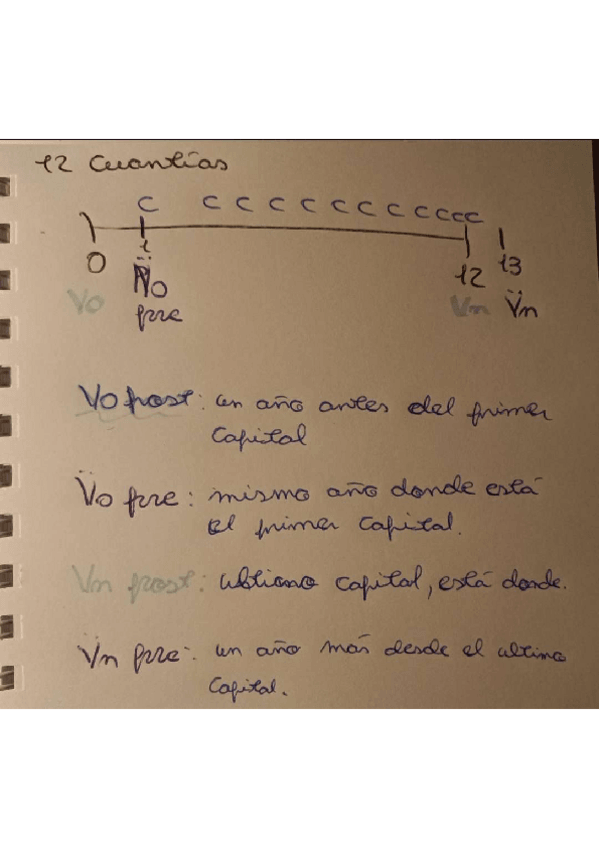 12 Cuantías
C C C C C C C C C C C C
0 1 12 13
Vo V̈o Vn V̈n
pre
Vo post: un año antes del primer
Capital
V̈o pre: mismo año donde está
el primer Capital.
Vn post: ultimo capital, está donde.
V̈n pre: un año más desde el ultimo
Capital.